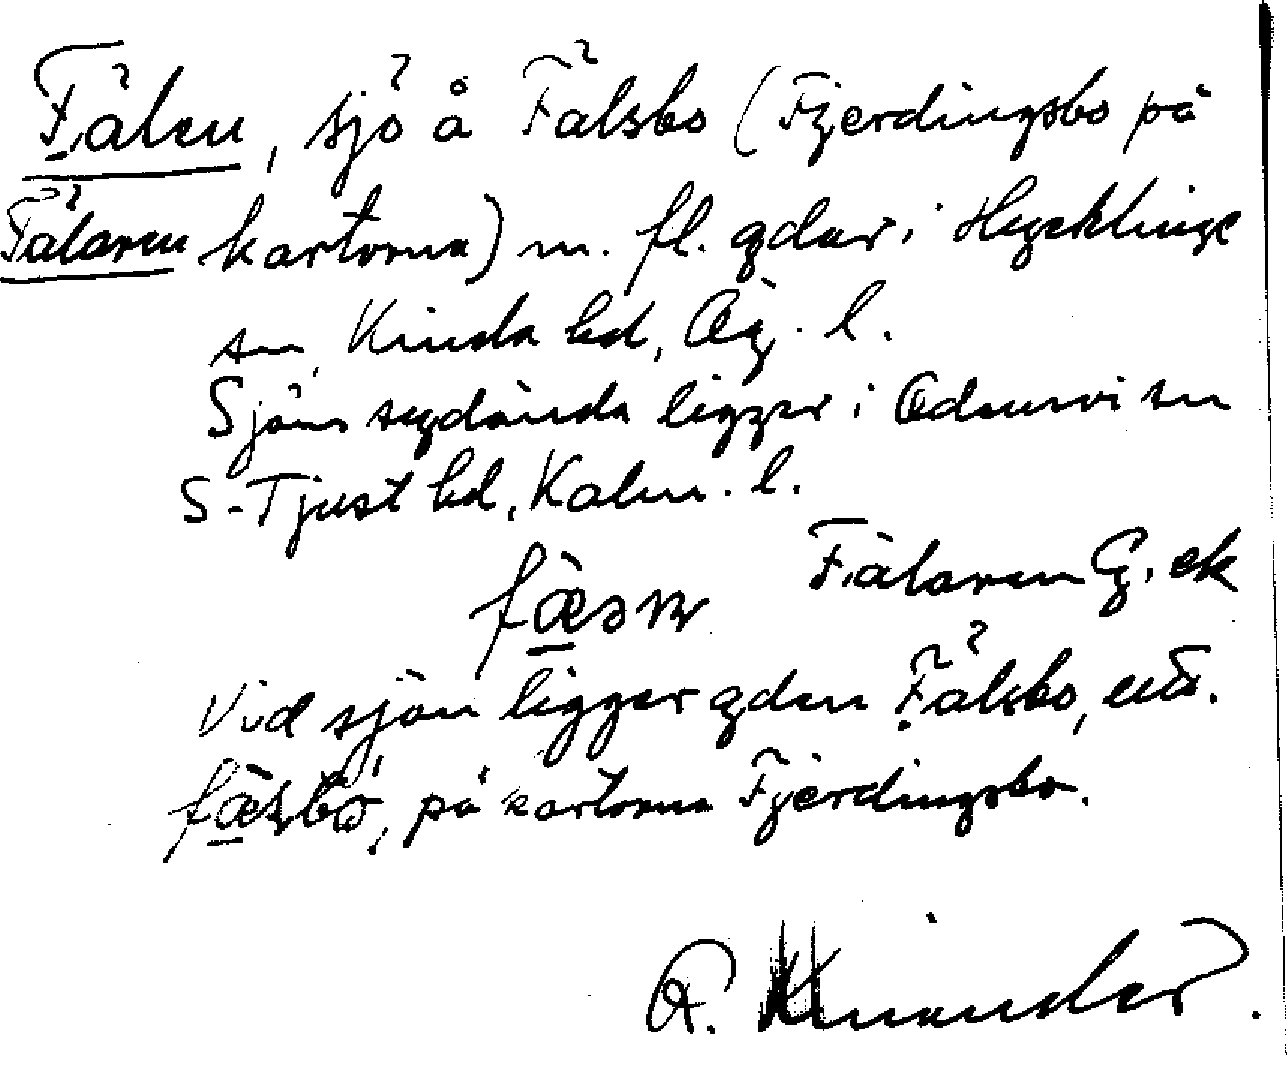 Fälen, sjö å Fälsbo (Fjerdingsbo på
Fälaren kartorna) m. fl. gdar i Hycklinge
sn, Kinda hd, Ög. l.
Sjöns sydända ligger i Odensvi sn
S-Tjust hd, Kalm. l.
Fälaren G. ek
Vid sjön ligger gden Fälsbo, utt.
på kartorna Fjerdingsbo.
R. Kinander.